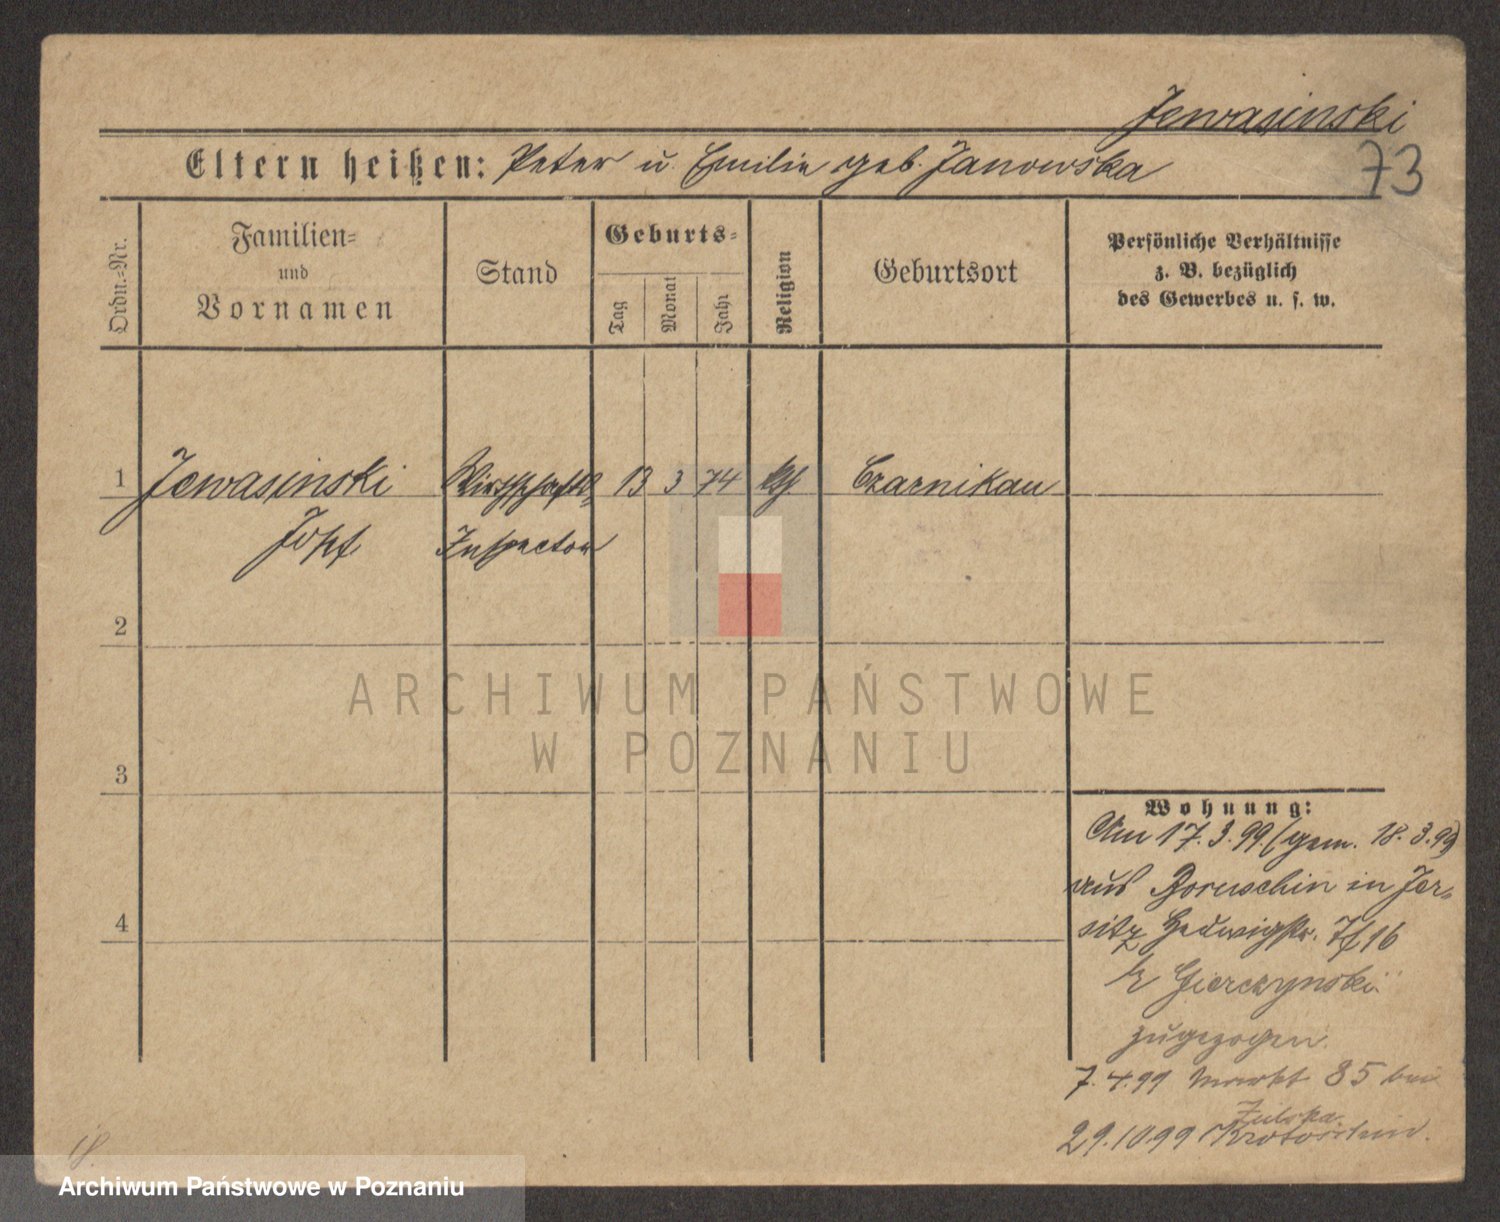 Jewasinski
Eltern heißen: Peter u. Emilie geb. Janowska
73
Ordn.=Nr.
Familien=
und
Vornamen
Stand
Geburts=
Tag
Monat
Jahr
Religion
Geburtsort
Persönliche Verhältnisse
z. B. bezüglich
des Gewerbes u. s. w.
1 Jewasinski Wirtschafts 13 3 74 kth. Czarnikau
Josef Inspector
2
ARCHIWUM PAŃSTWOWE
W POZNANIU
3
Wohnung:
Am 17.3.99. (gem. 18.3.99)
aus Boruschin in Jer-
sitz Hedwigstr. 16
4
b/ Gierczynski
zugezogen.
7.4.99 Markt 85 bei
Zulska
29.10.99 Krotoschin.
Archiwum Państwowe w Poznaniu